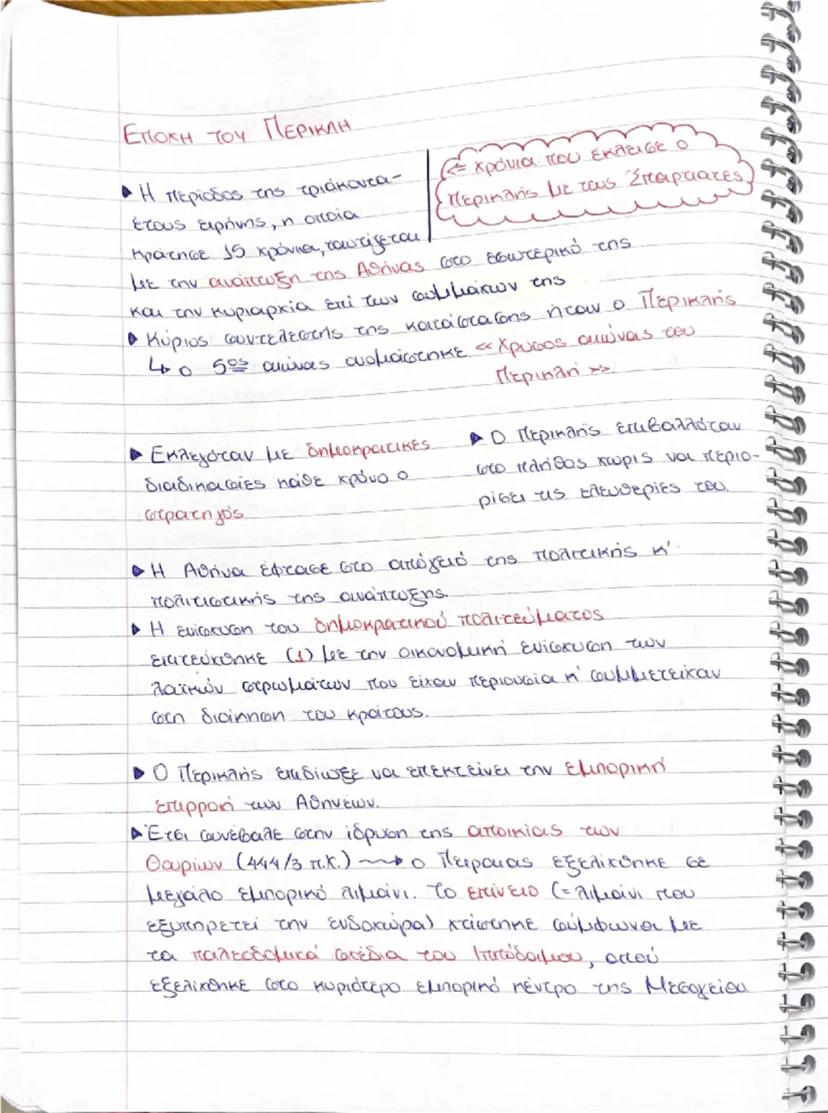 ΕΠΟΧΗ ΤΟΥ ΠΕΡΙΚΛΗ
<= Χρόνια που έκλεισε ο
Περικλής με τους Σπαρτιάτες
▶ Η περίοδος της τριακοντα-
έτους ειρήνης, η οποία
κράτησε 15 χρόνια, ταυτίζεται
με την ανάπτυξη της Αθήνας στο εσωτερικό της
και την κυριαρχία επί των συμμάχων της
▶ Κύριος συντελεστής της κατάστασης ήταν ο Περικλής
↳ ο 5ος αιώνας ονομάστηκε «Χρυσός αιώνας του
Περικλή».
▶ Εκλεγόταν με δημοκρατικές
διαδικασίες κάθε χρόνο ο
στρατηγός
▶ Ο Περικλής επιβαλλόταν
στο πλήθος χωρίς να περιο-
ρίσει τις ελευθερίες του.
▶ Η Αθήνα έφτασε στο απόγειό της πολιτικής κ'
πολιτιστικής της ανάπτυξης.
▶ Η ενίσχυση του δημοκρατικού πολιτεύματος
επιτεύχθηκε (1) με την οικονομική ενίσχυση των
λαϊκών στρωμάτων που είχαν περιουσία κ' συμμετείχαν
στη διοίκηση του κράτους.
▶ Ο Περικλής επιδίωξε να επεκτείνει την εμπορική
επιρροή των Αθηνέων.
▶ Έτσι συνέβαλε στην ίδρυση της αποικίας των
Θουρίων (444/3 π.Χ.) ~~→ ο Πειραιάς εξελίχθηκε σε
μεγάλο εμπορικό λιμάνι. Το επίνειο (= λιμάνι που
εξυπηρετεί την ενδοχώρα) χτίστηκε σύμφωνα με
τα παλεοδομικά σχέδια του Ιπποδάμου, οπού
εξελίχθηκε στο κυριότερο εμπορικό κέντρο της Μεσογείου.